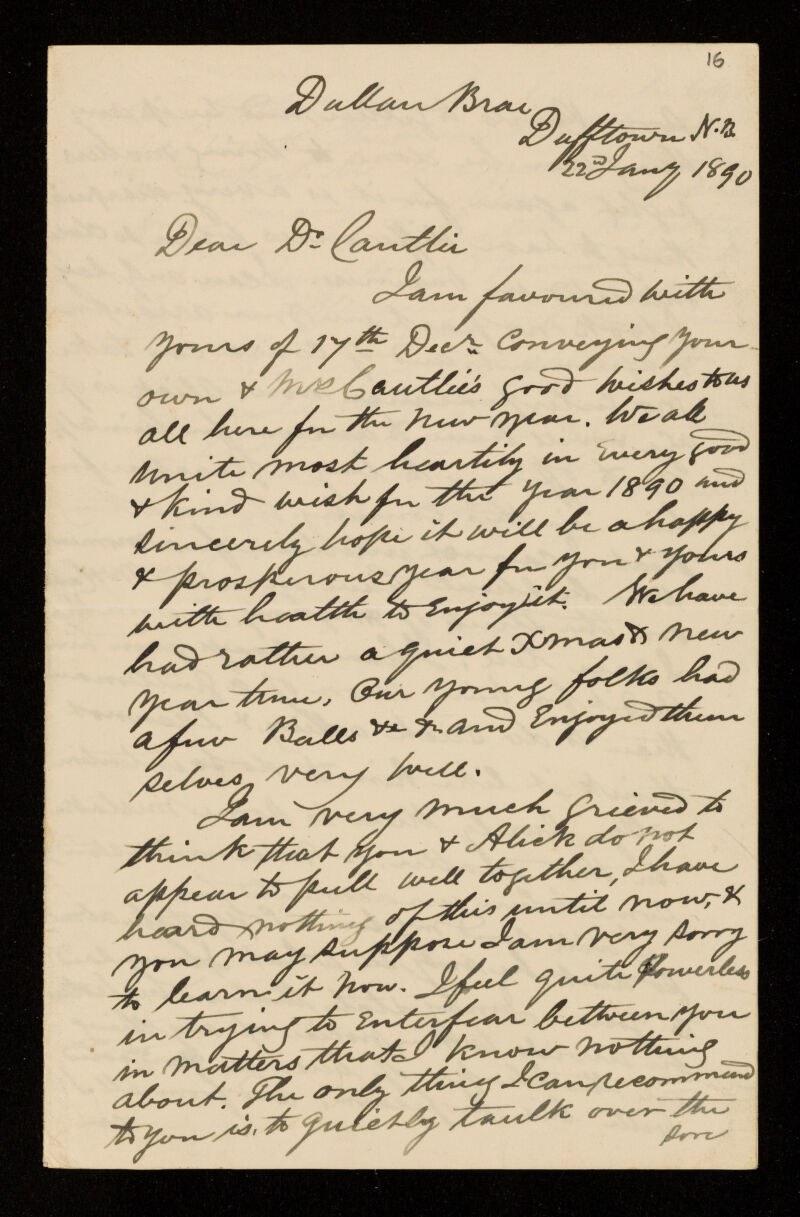 16
Dullan Brae
Dufftown N.B.
22nd Jany 1890
Dear Dr. Cantlie
I am favoured with
yours of 17th Decr. Conveying your
own & Mrs Cantlie's good wishes to us
all here for the New Year. We all
unite most heartily in Every good
& kind wish for the Year 1890 and
sincerely hope it will be a happy
& prosperous year for you & yours
with health to Enjoy it. We have
had rather a quiet Xmas & New
Year time, Our young folks had
a few Balls &c &c and Enjoyed them
selves very well.
I am very much grieved to
think that you & Alick do not
appear to pull well together, I have
heard nothing of this until now, &
you may suppose I am very sorry
to learn it now. I feel quite Powerless
in trying to Enterfear between you
in matters that I know nothing
about. The only thing I can recommend
to you is, to quietly taulk over the
sore